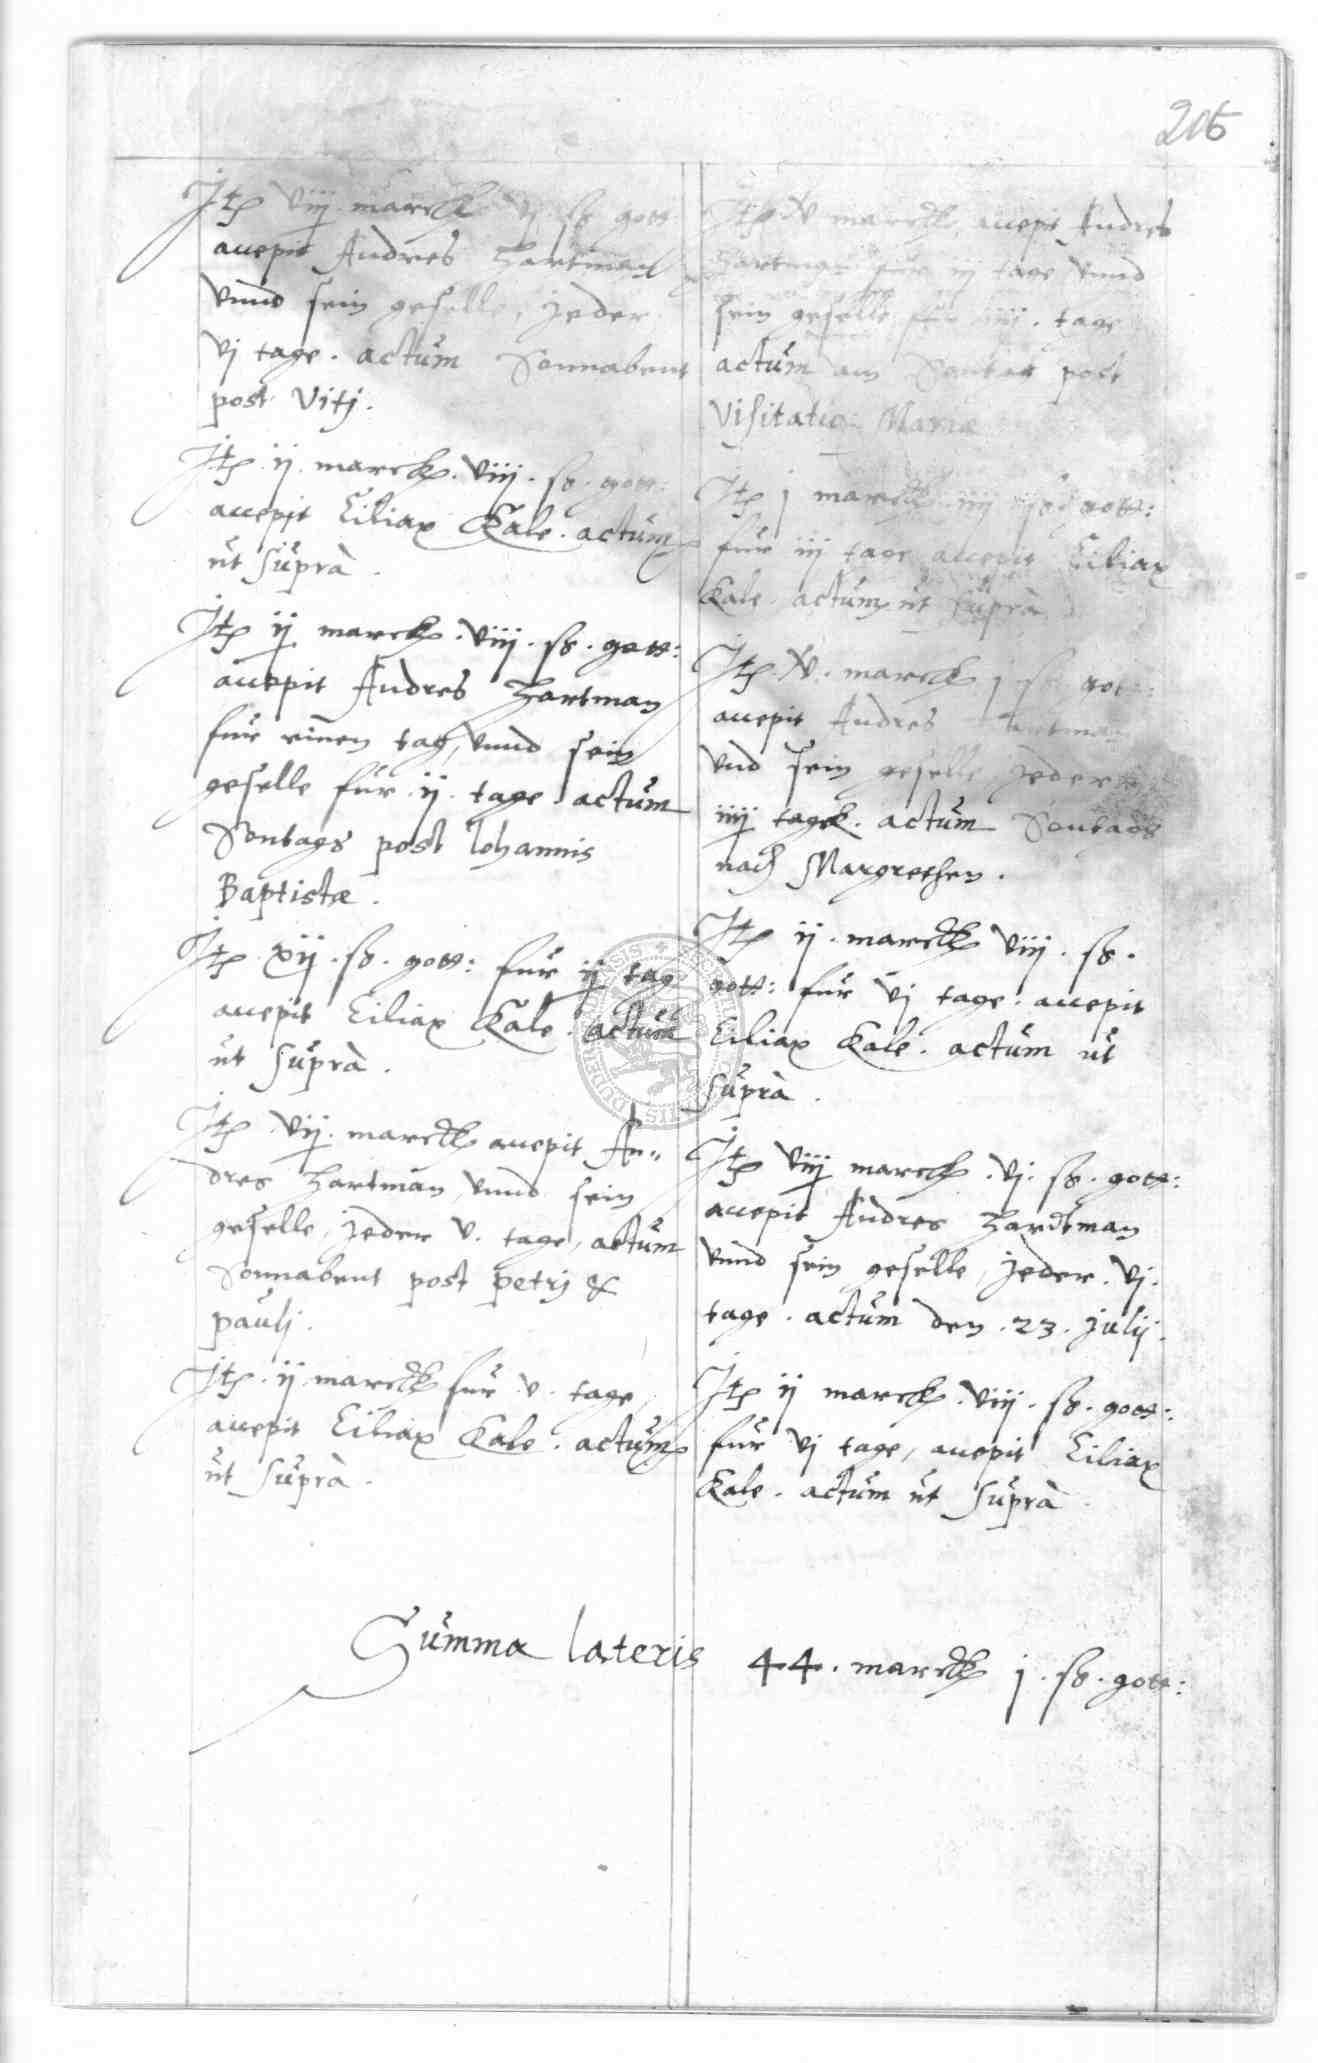 206
Itͤ viij marck vj ß gott
accepit Andres Hartman
vnnd sein geselle, jeder
vj tage . actum Sonnabent
post Vitj .
Itͤ ij marck . viij . ß . gott:
accepit Ciliax Kale . actum
ut supra .
Itͤ ij marck . viij . ß . gott:
accepit Andres Hartman
fur einen tag, vnnd sein
geselle fur ij . tage actum
Sontags post Iohannis
Baptistæ .
Itͤ xij . ß . gott: fur ij tag
accepit Ciliax Kale . actum
ut supra .
Itͤ vij . marck accepit An„
dres Hartman vnnd sein
geselle, jeder v . tage, actum
Sonnabent post petrj &
paulj .
Itͤ . ij marck fur v . tage,
accepit Ciliax Kale . actum
ut supra .
Itͤ v marck, accepit Andres
Hartman fur iij tage vnnd
sein geselle fur iiij . tage
actum am Sontag post
Visitatio: Mariæ
Itͤ j marck ß gott:
fur iij tage accepit Ciliax
Kale . actum ut supra
Itͤ v . marck j ß gott:
accepit Andres Hartman
vnd sein geselle jeder
iiij tage . actum Sontags
nach Margrethen .
Itͤ ij . marck viij . ß .
gott: fur vj tage . accepit
Ciliax Kale . actum ut
supra .
Itͤ viij marck . vj . ß . gott:
accepit Andres Hardtman
vnnd sein geselle, jeder . vj .
tage . actum den . 23 . julij .
Itͤ ij marck . viij . ß . gott:
fur vj tage, accepit Ciliax
Kale . actum ut supra
Summa lateris 44 . marck j . ß . gott: